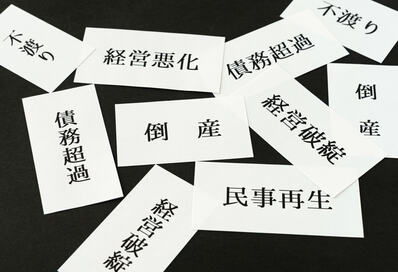 不渡り
経営悪化
債務超過
不渡り
債務超過
倒産
経営破綻
倒産
民事再生
経営破綻